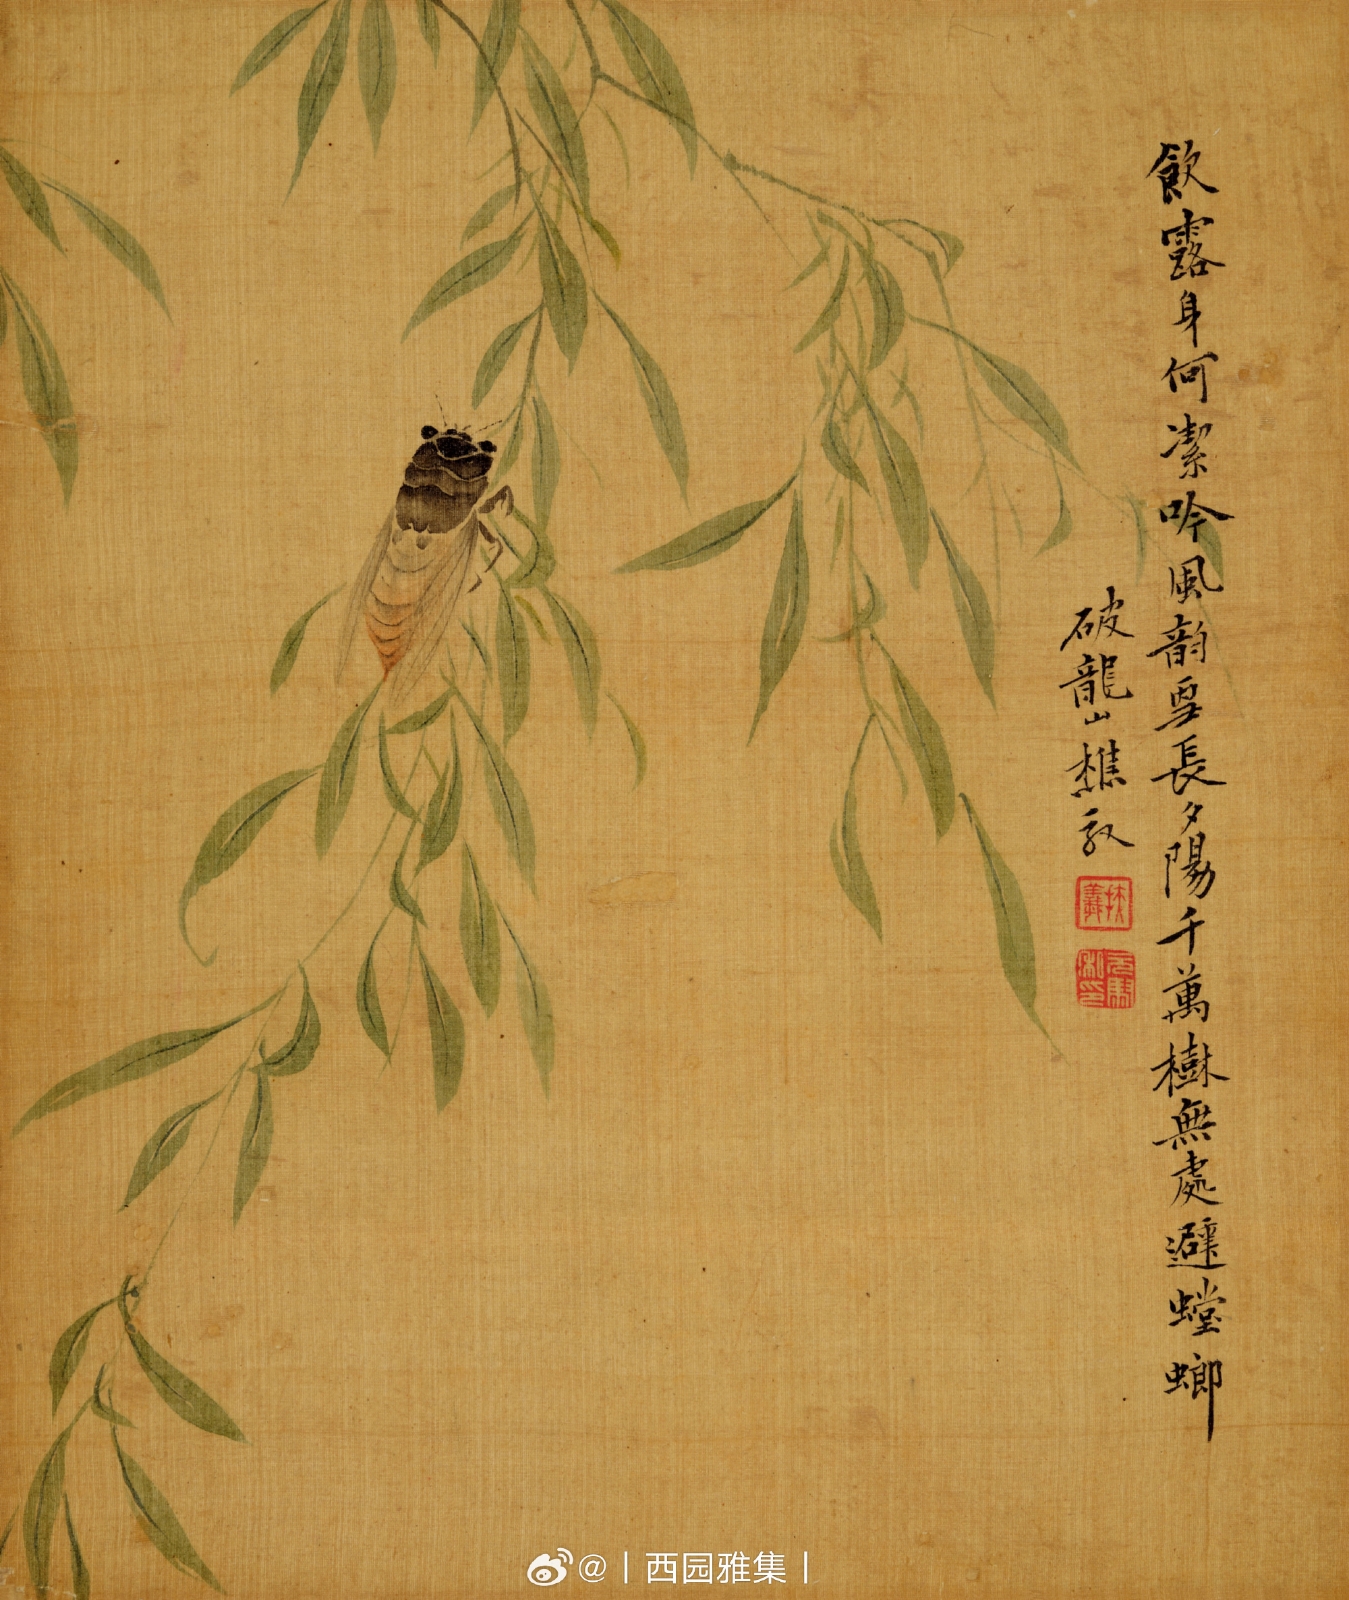 飲露身何潔吟風韵更長夕陽千萬樹無處避螳螂
破龍山樵敬
扶義
@丨西园雅集丨